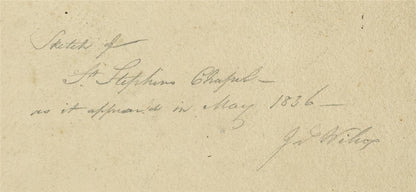 Sketch of
St Stephens Chapel —
as it appeard in May 1836 —